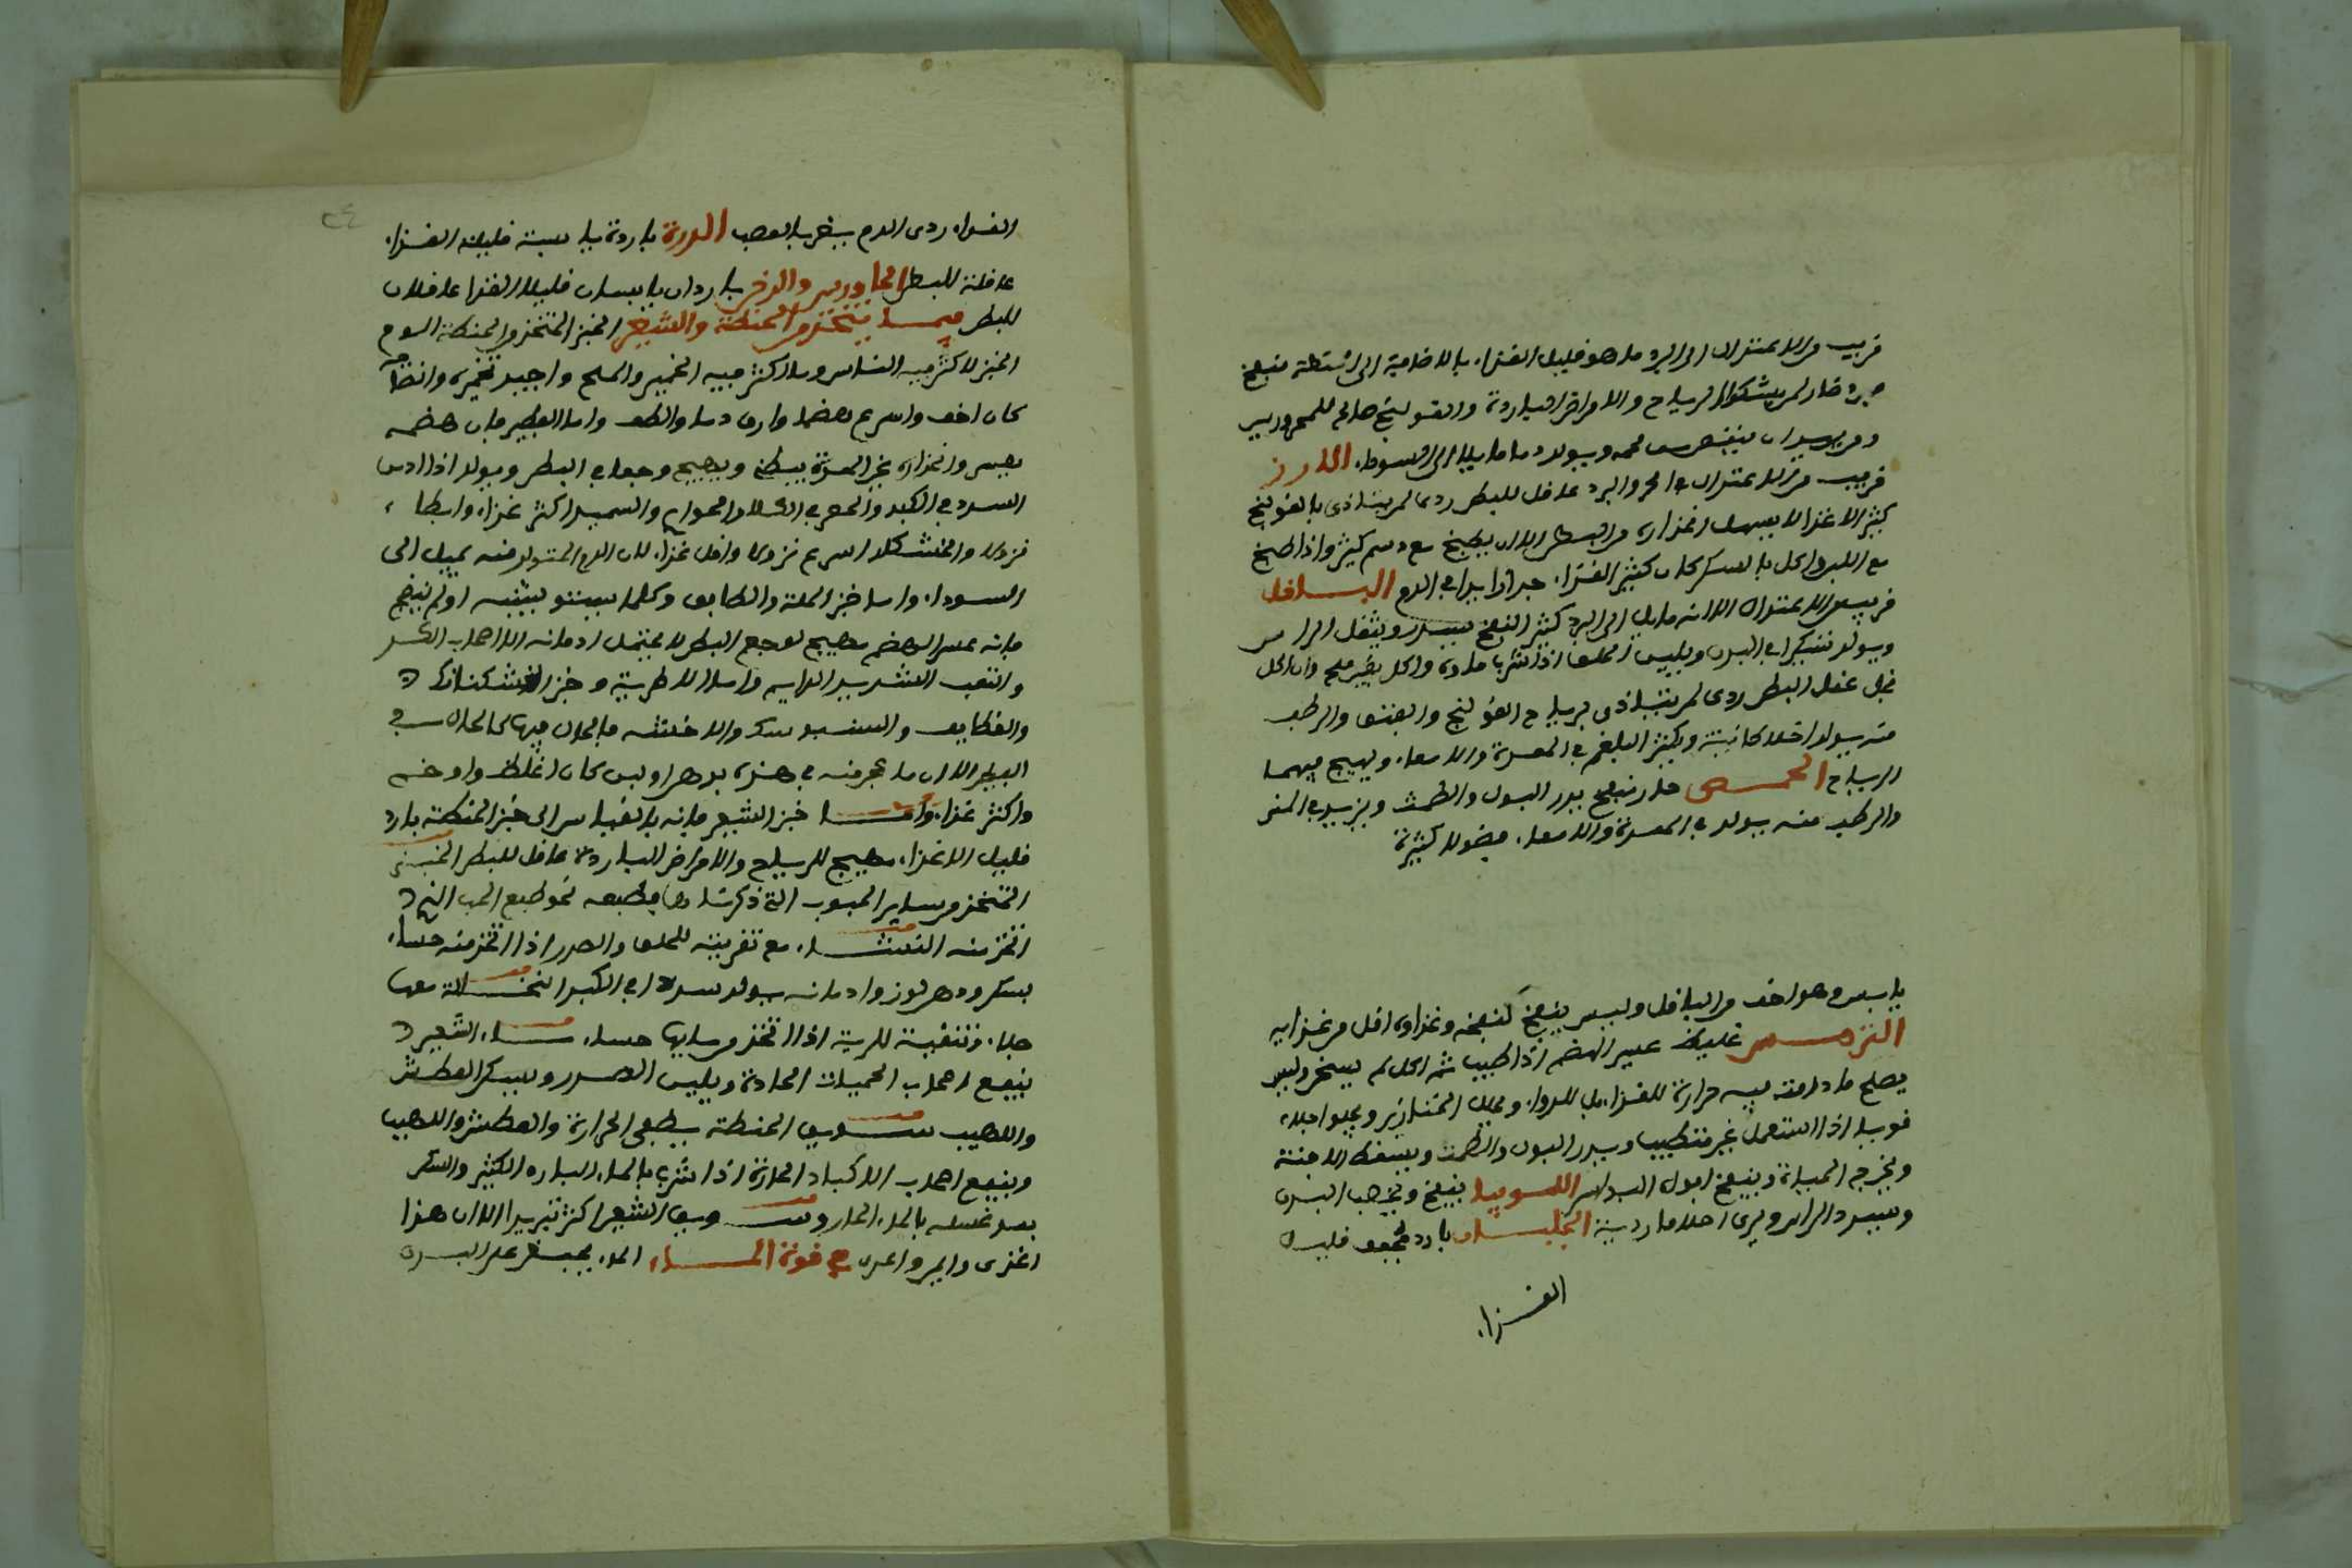 قريب من الاعتدال الى البرد ما هو قليل الغذاء بالاضافة الى الحنطة منفخ
ضار لمن يشكوا الرياح والامراض الباردة والقولنج صالح للمحرورين
ومن يريد ان ينقص لحمه ويولد دما مايلا الى السوداء الارز
قريب من الاعتدال في الحر والبرد عاقل للبطن ردى لمن يتاذى بالقولنج
كثير الاغذا لا يسهل انحداره من البطن الا ان يطبخ مع دسم كثير واذا طبخ
مع اللبن واكل بالسكر كان كثير الغذاء جدا زايدا في الدم الباقلى
قريب من الاعتدال الا انه مايل الى البرد كثير النفخ يسدر ويثقل الراس
ويولد تكسرا في البدن ويلين الحلق اذا شرب ماوه واكل بغير ملح وان اكل
بخل عقل البطن ردى لمن يتاذى برياح القولنج والفتق والرطب
منه يولد اخلاطا نية ويكثر البلغم في المعدة والامعاء ويهيج فيهما
الرياح الحمص حار منفخ يدر البول والطمث ويزيد في المنى
والرطب منه يولد في المعدة والامعاء فضولا كثيرة
يابس وهو اخف من الباقلى وليس ينفخ كنفخه وغذاوه اقل من غذايه
الترمس غليظ عسير الهضم اذا طيب ثم اكل لم يسخن وليس
يصلح ما دامت فيه حرارة للغذاء بل للدواء ويحلل الخنازير ويجلوا جلاء
قويا اذا استعمل غير مطيب ويدر البول والطمث ويسقط الاجنة
ويخرج الحيات وينفخ البواسير اللوبيا ينفخ ويخصب البدن
ويسدر الراس ويرى احلاما ردية الجلبان بارد مجفف قليل
الغذاء
٢٤
الغذاء ردى الدم يضر بالعصب الدرة باردة يابسة قليلة الغذاء
عاقلة للبطن الجاورس والدخن باردان يابسان قليلا الغذا عاقلان
للبطن فيما يتخذ من الحنطة والشعير الخبز المتخذ من الحنطة اليوم
الخبز لاكثر الناس وما كثر فيه الخمير والملح واجيد تخميره وانضاجه
كان اخف واسرع هضما وارق دما والطف واما الفطير فان هضمه
يعسر وانحداره عن المعدة يبطئ ويهيج وجعا في البطن ويولد اذا ادمن
السدد في الكبد والحصى في الكلا والسميد اكثر غذاء وابطاء
نزولا والخشكار اسرع نزولا واقل غذاء لان الدم المتولد منه يميل الى
السوداء واما خبز الملة والطابق وكلما لم ينضج
فانه عسر الهضم مهيج لوجع البطن لا يحتمل ادمانه الا اصحاب الكد
والتعب الشديد الدايم واما الاطرية وخبز الخشكنانك
والقطايف والسنبوسك فالحال فيها كالحال في
الفطير الا ان ما عجن منه في هذه بدهن او لبن كان اغلظ واوخم
واكثر غذاء واما خبز الشعير فانه بالقياس الى خبز الحنطة بارد
قليل الاغذاء مهيج للرياح والامراض الباردة عاقل للبطن الخبز
المتخذ من ساير الحبوب التي ذكرنا فطبعه نحو طبع الحب الذي
اتخذ منه النشاء مع تغرية للحلق والصدر اذا اتخذ منه حساء
بسكر ودهن لوز وادمانه يولد سددا في الكبد النخالة معها
جلاء وتنقية للرية اذا اتخذ من مايها حساء ماء الشعير
ينفع اصحاب الحميات الحادة ويلين الصدر ويسكن العطش
واللهيب سويق الحنطة يطفى الحرارة والعطش واللهيب
وينفع اصحاب الاكباد الحارة اذا شرب بالماء البارد الكثير والسكر
بعد غسله بالماء الحار وسويق الشعير اكثر تبريدا الا ان هذا
اغذى في قوة الماء الماء يحفظ على البدن